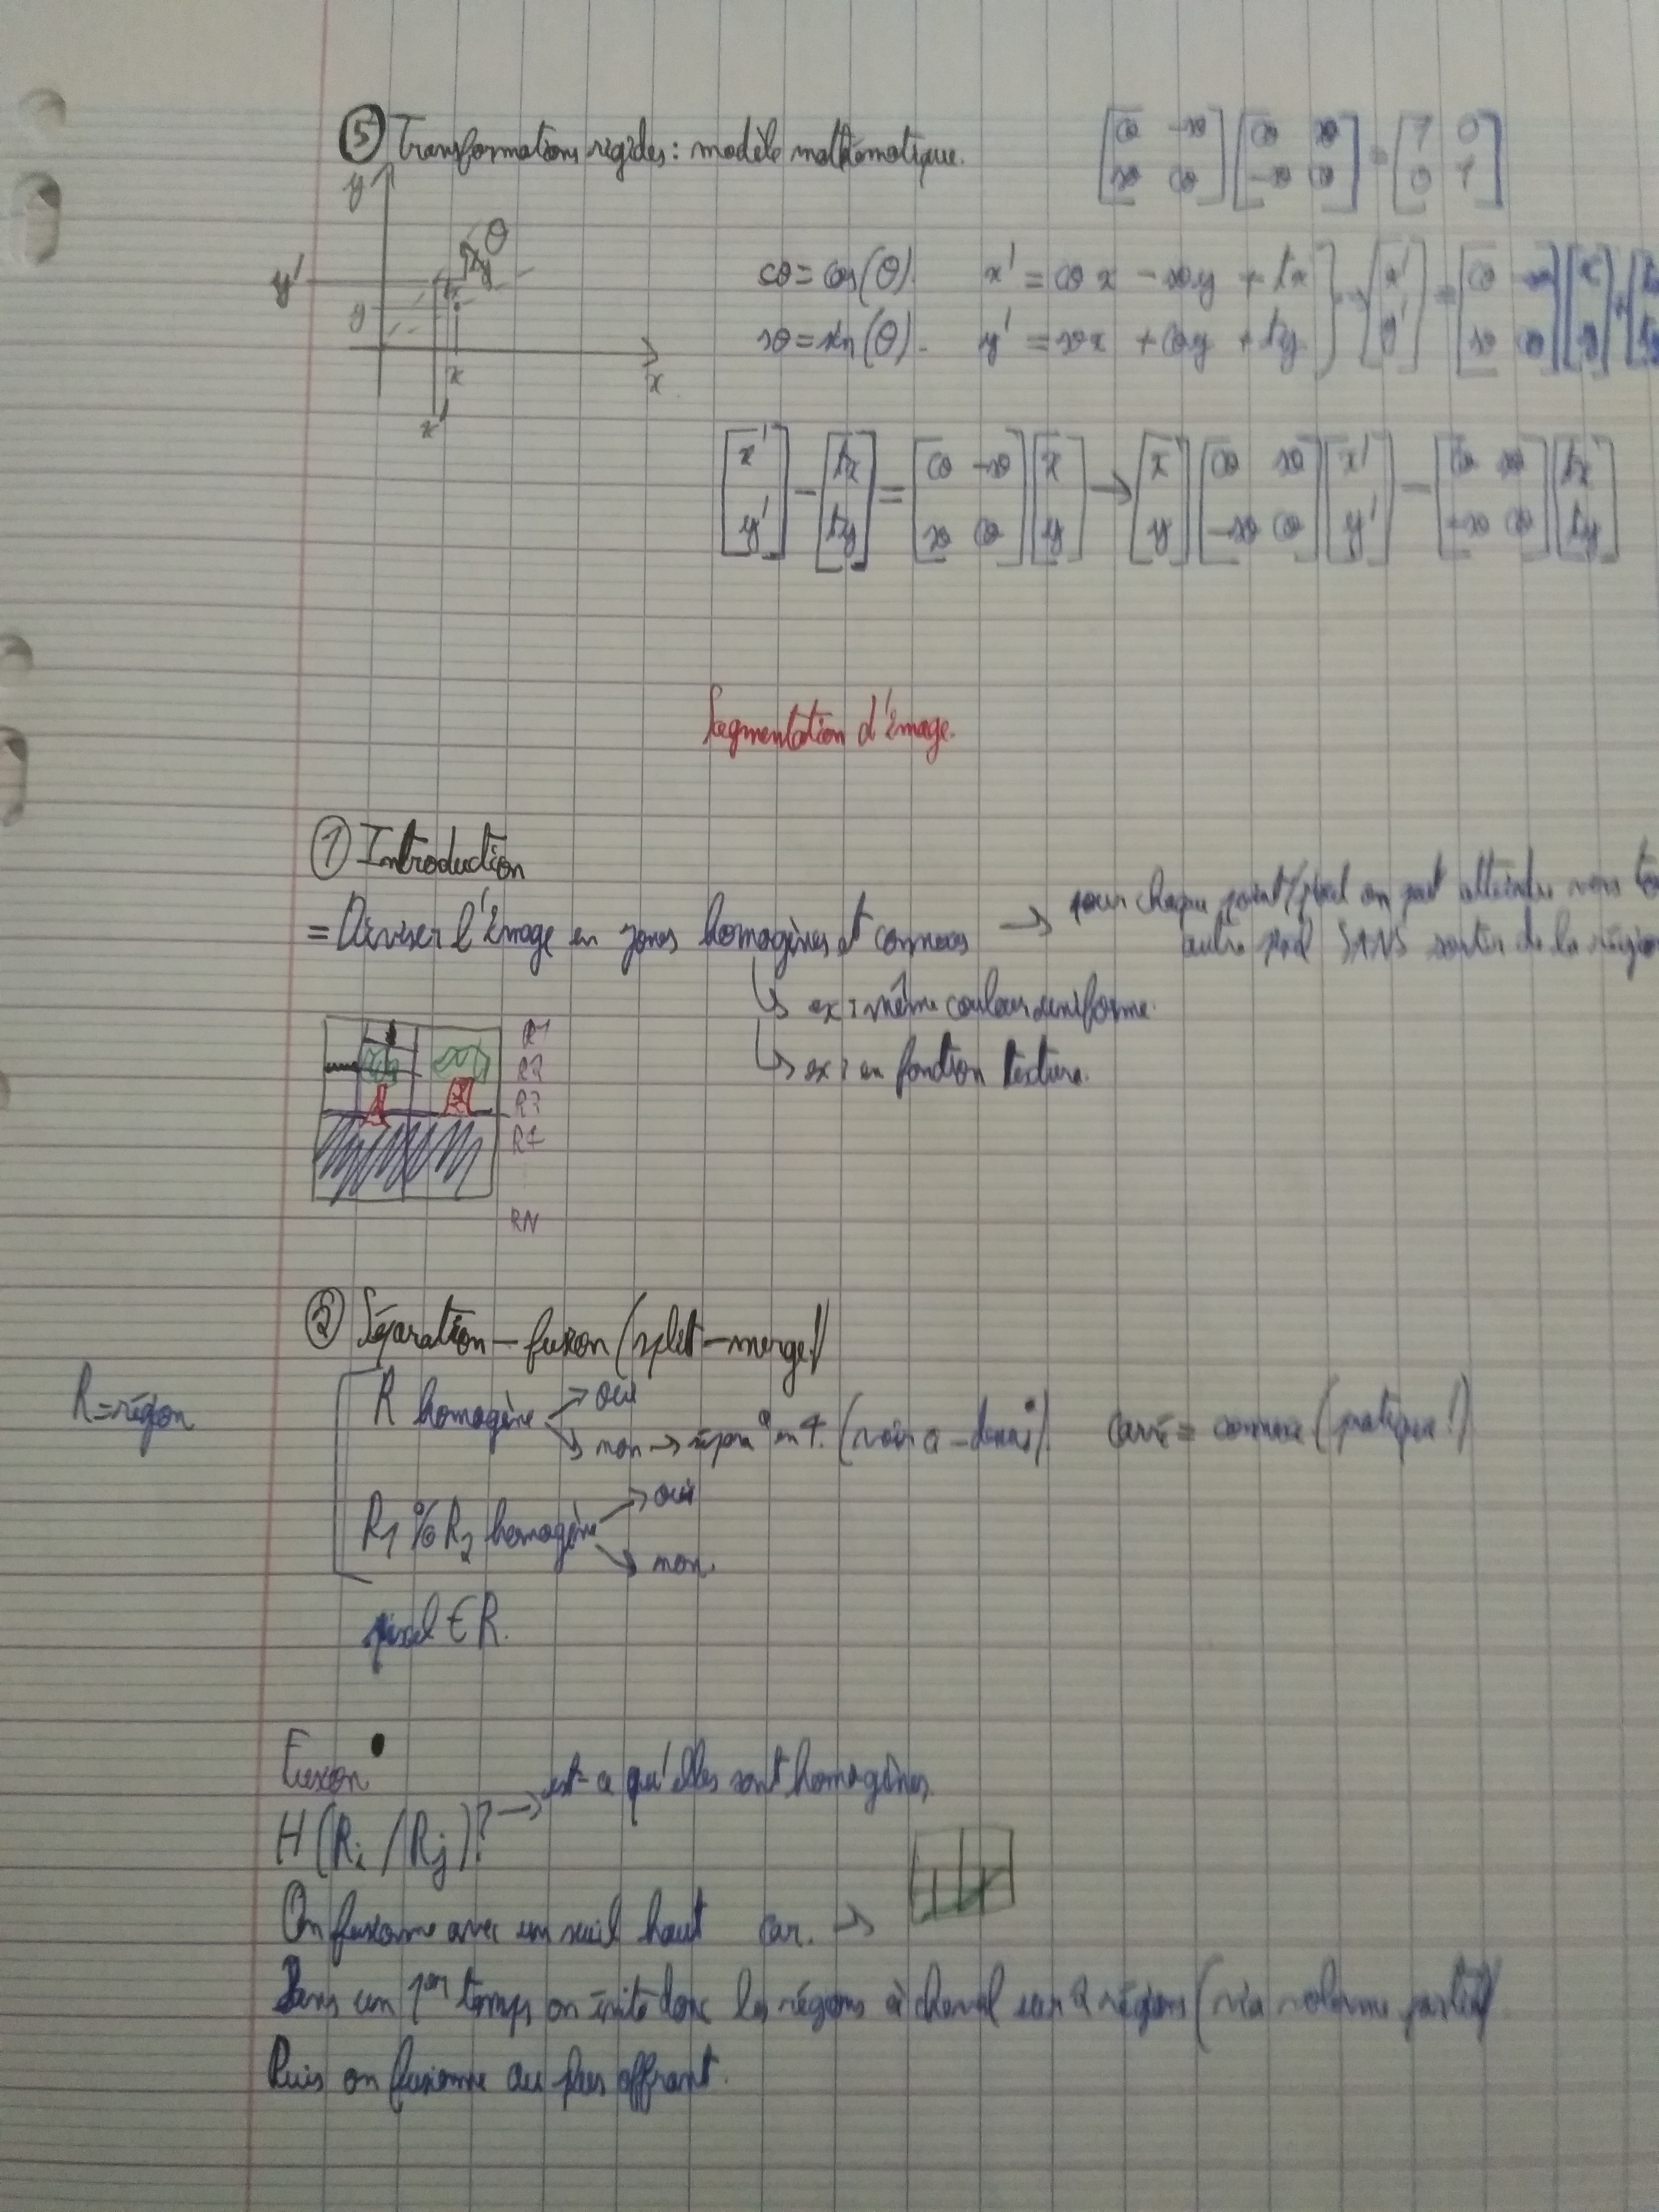 ⑤ Transformations rigides : modèle mathématique.
[cθ -sθ] [cθ sθ] = [1 0]
[sθ cθ] [-sθ cθ] [0 1]
y
θ
y'
y
x
x
x'
cθ = cos(θ). x' = cθ x - sθ y + tx } → [x'] = [cθ -sθ] [x] + [tx
sθ = sin(θ). y' = sθ x + cθ y + ty [y'] [sθ cθ] [y] [ty
[x'] - [tx] = [cθ -sθ] [x] → [x] [cθ sθ] [x'] - [cθ sθ] [tx]
[y'] [ty] [sθ cθ] [y] [y] [-sθ cθ] [y'] [-sθ cθ] [ty]
Segmentation d'image.
① Introduction
= Diviser l'image en zones homogènes et connexes → pour chaque point/pixel on peut atteindre
autre pixel SANS sortir de la région
↳ ex : même couleur uniforme.
↳ ex : en fonction texture.
R1
R2
R3
R4
RN
② Séparation - fusion (split-merge)
R = région
R homogène → oui
→ non → sépara° en 4. (voir ci-dessus) carré = connexe (pratique !)
R1 % R2 homogène → oui
→ non.
pixel ∈ R.
Fusion
H(Ri / Rj)? → est-ce qu'elles sont homogènes.
On fusionne avec un seuil haut car. →
Dans un 1er temps on évite donc les régions à cheval sur 2 régions (via volume partiel)
Puis on fusionne au plus offrant.